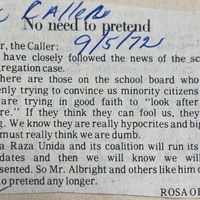 Caller
No need to pretend
9/5/72
r, the Caller:
have closely followed the news of the sc
regation case.
here are those on the school board who
enly trying to convince us minority citizens
are trying in good faith to "look after
re." If they think they can fool us, they
g. We know they are really hypocrites and big
must really think we are dumb.
a Raza Unida and its coalition will run its
dates and then we will know we will
sented. So Mr. Albright and others like him c
o pretend any longer.
ROSA O